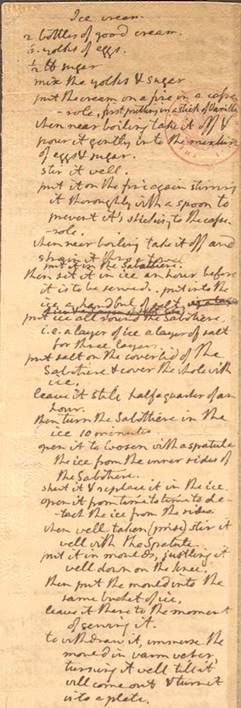 Ice cream.
2 bottles of good cream.
6. yolks of eggs.
1/2 lb sugar
mix the yolks & sugar
put the cream on a fire in a casse-
-role, first putting in a stick of Vanilla.
when near boiling take it off &
pour it gently into the mixture
of eggs & sugar.
stir it well.
put it on the fire again stirring
it thoroughly with a spoon to
prevent it's sticking to the casse-
-role.
when near boiling take it off and
strain it thro' a towel.
put it in the Sabottiere.
then set it in ice an hour before
it is to be served. put into the
ice a handful of salt.
put ice all round the Sabottiere.
i.e. a layer of ice a layer of salt
for three layers.
put salt on the coverlid of the
Sabotiere & cover the whole with
ice.
leave it still half a quarter of an
hour.
then turn the Sabottiere in the
ice 10 minutes
open it to loosen with a spatula
the ice from the inner sides of
the Sabotiere.
shut it & replace it in the ice
open it from time to time to de-
-tach the ice from the sides
when well taken (prise) stir it
well with the Spatula.
put it in moulds, justling it
well down on the knee.
then put the mould into the
same bucket of ice.
leave it there to the moment
of serving it.
to withdraw it, immerse the
mould in warm water,
turning it well till it
will come out & turn it
into a plate.